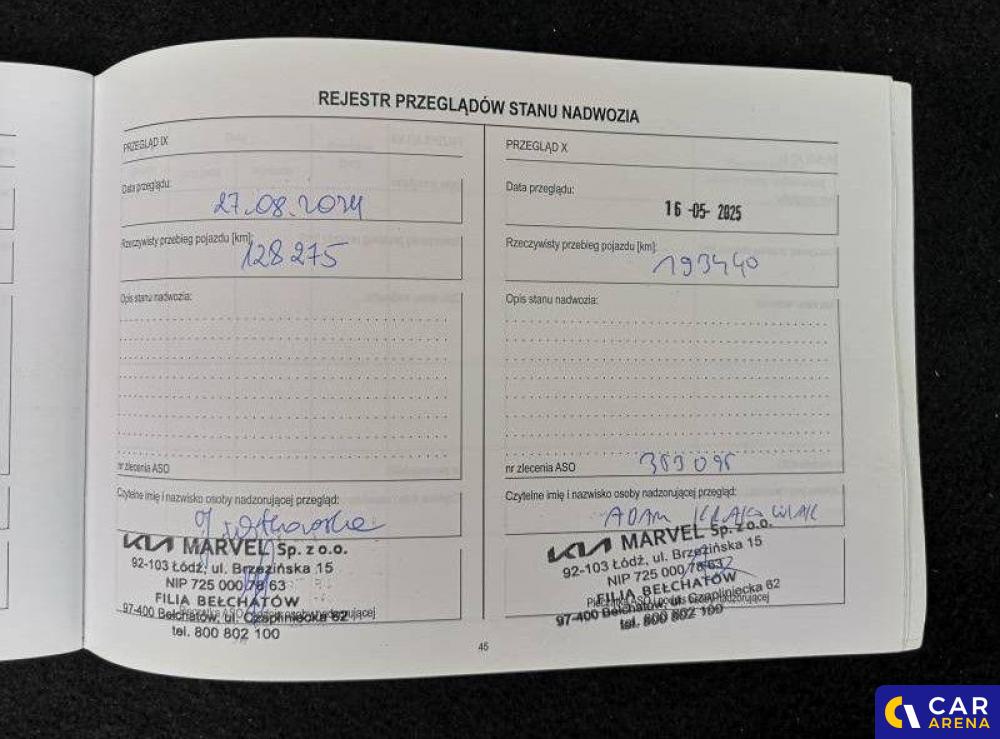 REJESTR PRZEGLĄDÓW STANU NADWOZIA
PRZEGLĄD IX
Data przeglądu:
27.08.2024
Rzeczywisty przebieg pojazdu [km]:
128275
Opis stanu nadwozia:
nr zlecenia ASO
Czytelne imię i nazwisko osoby nadzorującej przegląd:
KIA MARVEL Sp. z o.o.
92-103 Łódź, ul. Brzezińska 15
NIP 725 000 78 63
FILIA BEŁCHATÓW
97-400 Bełchatów, ul. Czapliniecka 62
tel. 800 802 100
PRZEGLĄD X
Data przeglądu:
16 -05- 2025
Rzeczywisty przebieg pojazdu [km]:
193440
Opis stanu nadwozia:
nr zlecenia ASO
Czytelne imię i nazwisko osoby nadzorującej przegląd:
ADAM
KIA MARVEL Sp. z o.o.
92-103 Łódź, ul. Brzezińska 15
NIP 725 000 78 63
FILIA BEŁCHATÓW
97-400 Bełchatów, ul. Czapliniecka 62
tel. 800 802 100
45
CAR
ARENA